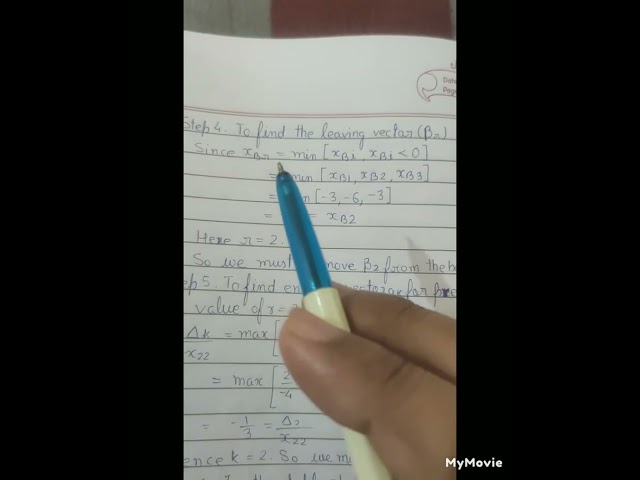 Date
Page
Step 4. To find the leaving vector (βr)
Since xBr = min [xBi, xBi < 0]
= min [xB1, xB2, xB3]
= [-3, -6, -3]
= = xB2
Here r = 2.
So we must move β2 from the
5. To find vector for
value of r =
Δk/x22 = max [
= max [2/-4
= -1/3 = Δ2/x22
Hence k = 2. So we
MyMovie